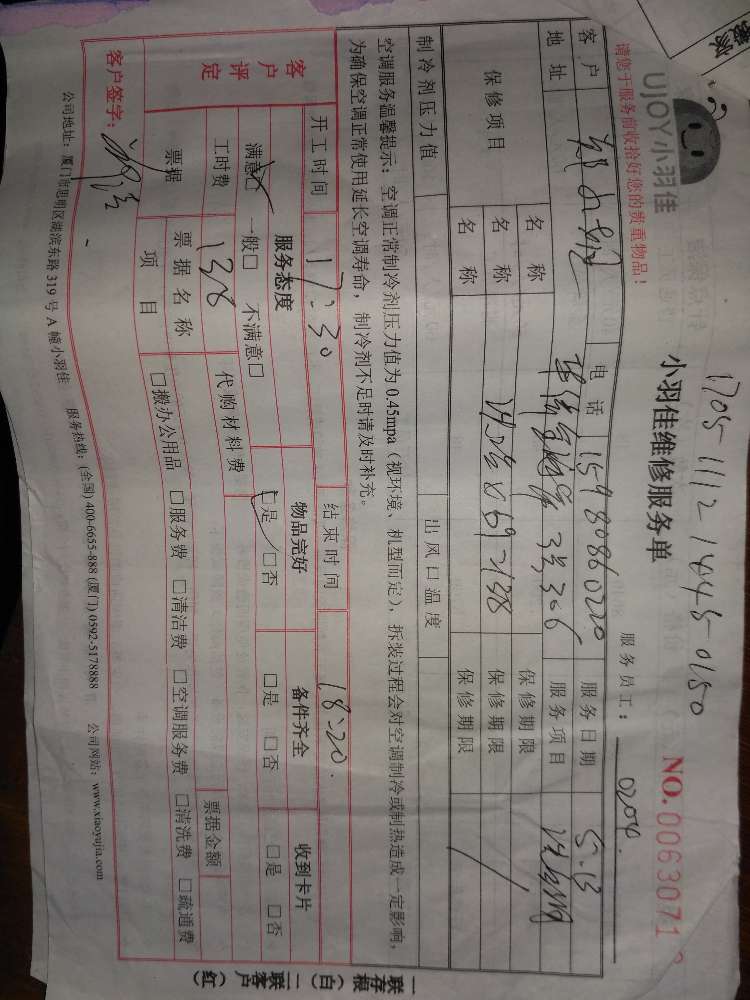 1705-1112-1448-0150
UJOY小羽佳
小羽佳维修服务单
NO.0063071
请您于服务前收拾好您的贵重物品!
服务员工: 0204
客户
电话 15980860220
服务日期 5.13
地址
3号306
服务项目
保修项目
名称
保修期限
名称
保修期限
名称
保修期限
制冷剂压力值
出风口温度
空调服务温馨提示:空调正常制冷剂压力值为0.45mpa(视环境、机型而定),拆装过程会对空调制冷或制热造成一定影响,
为确保空调正常使用延长空调寿命,制冷剂不足时请及时补充。
开工时间 17:30 结束时间 18:20.
客户评定
服务态度 物品完好 备件齐全 收到卡片
满意□ 一般□ 不满意□ □是 □否 □是 □否 □是 □否
工时费 138 代购材料费
票据 票据名称 票据金额
项目 □搬办公用品 □服务费 □清洁费 □空调服务费 □清洗费 □疏通费
客户签字:
公司地址:厦门市思明区湖滨东路319号A幢小羽佳 服务热线:(全国)400-6655-888 (厦门)0592-5178888 公司网站:www.xiaoyujia.com
一联存根(白)二联客户(红)